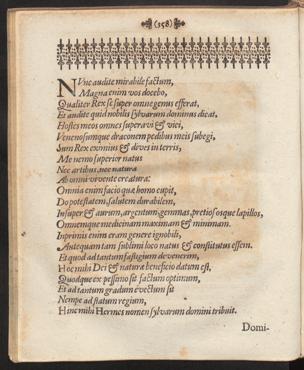 (158)
NVnc audite mirabile factum,
Magna enim vos docebo,
Qualiter Rex se super omne genus efferat,
Et audite quid nobilis sylvarum dominus dicat.
Hostes meos omnes superavi & vici,
Venenosumque draconem pedibus meis subegi,
Sum Rex eximius & dives in terris,
Me nemo superior natus
Nec artibus, nec natura
Ab omni vivente creatura:
Omnia enim facio quæ homo cupit,
Do potestatem, salutem durabilem,
Insuper & aurum, argentum, gemmas, pretiososque lapillos,
Omnemque medicinam maximam & minimam.
Inprimis enim eram genere ignobili,
Antequam tam sublimi loco natus & constitutus essem.
Et quod ad tantum fastigium devenerim,
Hoc mihi Dei & naturæ beneficio datum est,
Quodque ex pessimo sit factum optimum,
Et ad tantum gradum evectum sit
Nempe ad statum regium,
Hinc mihi Hermes nomen sylvarum domini tribuit.
Domi-